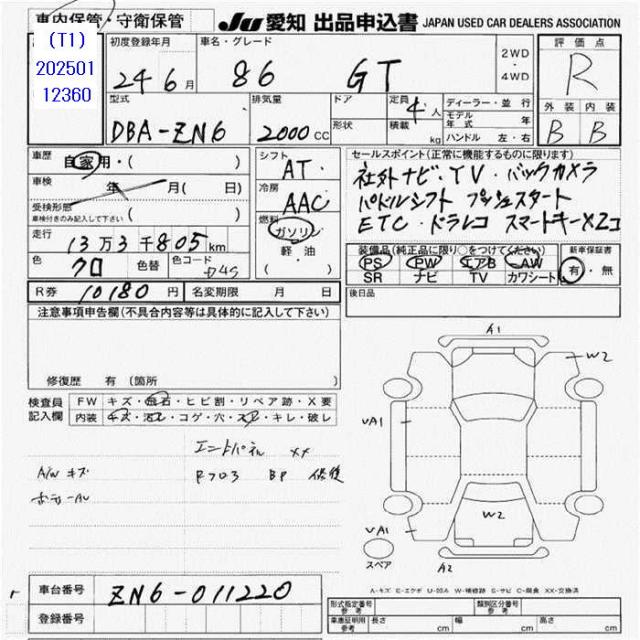 車内保管・守衛保管
JU 愛知 出品申込書 JAPAN USED CAR DEALERS ASSOCIATION
(T1)
202501
12360
初度登録年月
24 6月
車名・グレード
86 GT
2WD
・
4WD
評価点
R
外装 内装
B B
型式
DBA-ZN6
排気量
2000 CC
ドア
形状
定員
4人
積載 kg
ディーラー・並行
モデル年式 年
ハンドル 左・右
車歴
自家用・( )
車検
年 月( 日)
受検形態
車検付きのみ記入して下さい ( )
走行
13万3千805km
色
クロ
色替
色コード
D4S
シフト
AT
冷房
AAC
燃料
ガソリン
軽・油
( )
セールスポイント(正常に機能するものに限ります)
社外ナビ・TV・バックカメラ
パドルシフト プッシュスタート
ETC・ドラレコ スマートキーX2コ
装備品(純正品に限り○をつけてください)
PS PW エアB AW
SR ナビ TV カワシート
新車保証書
有・無
R券 10180円
名変期限 月 日
後日品
注意事項申告欄(不具合内容等は具体的に記入して下さい)
修復歴 有(箇所 )
検査員
記入欄
FW キズ・飛石・ヒビ割・リペア跡・X要
内装 キズ・汚レ・コゲ・穴・スレ・キレ・破レ
エンドパネル XX
A/W キズ
Rフロア BP 修復
A1
W2
UA1
W2
UA1
スペア
A2
A-キズ E-エクボ U-凹み W-補修跡 S-サビ C-腐食 XX-交換済
車台番号
ZN6-011220
登録番号
型式指定番号
参考
類別区分番号
参考
車庫証明用
参考
長さ cm
幅 cm
高さ cm